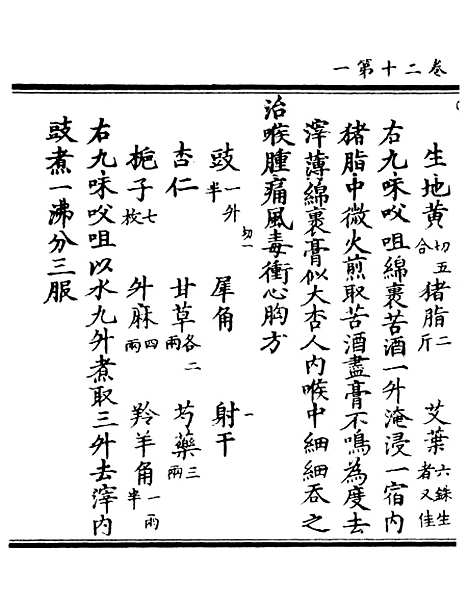 卷二十第一
生地黄切五合 猪脂二斤 艾葉六銖生者又佳
右九味㕮咀綿裹苦酒一升淹浸一宿内
猪脂中微火煎取苦酒盡膏不鳴為度去
滓薄綿裹膏似大杏人内喉中細細吞之
治喉腫痛風毒衝心胸方
豉一升半 切一 犀角 射干 一
杏仁 甘草各二兩 芍藥三兩
梔子七枚 升麻四兩 羚羊角一兩半
右九味㕮咀以水九升煮取三升去滓内
豉煮一沸分三服